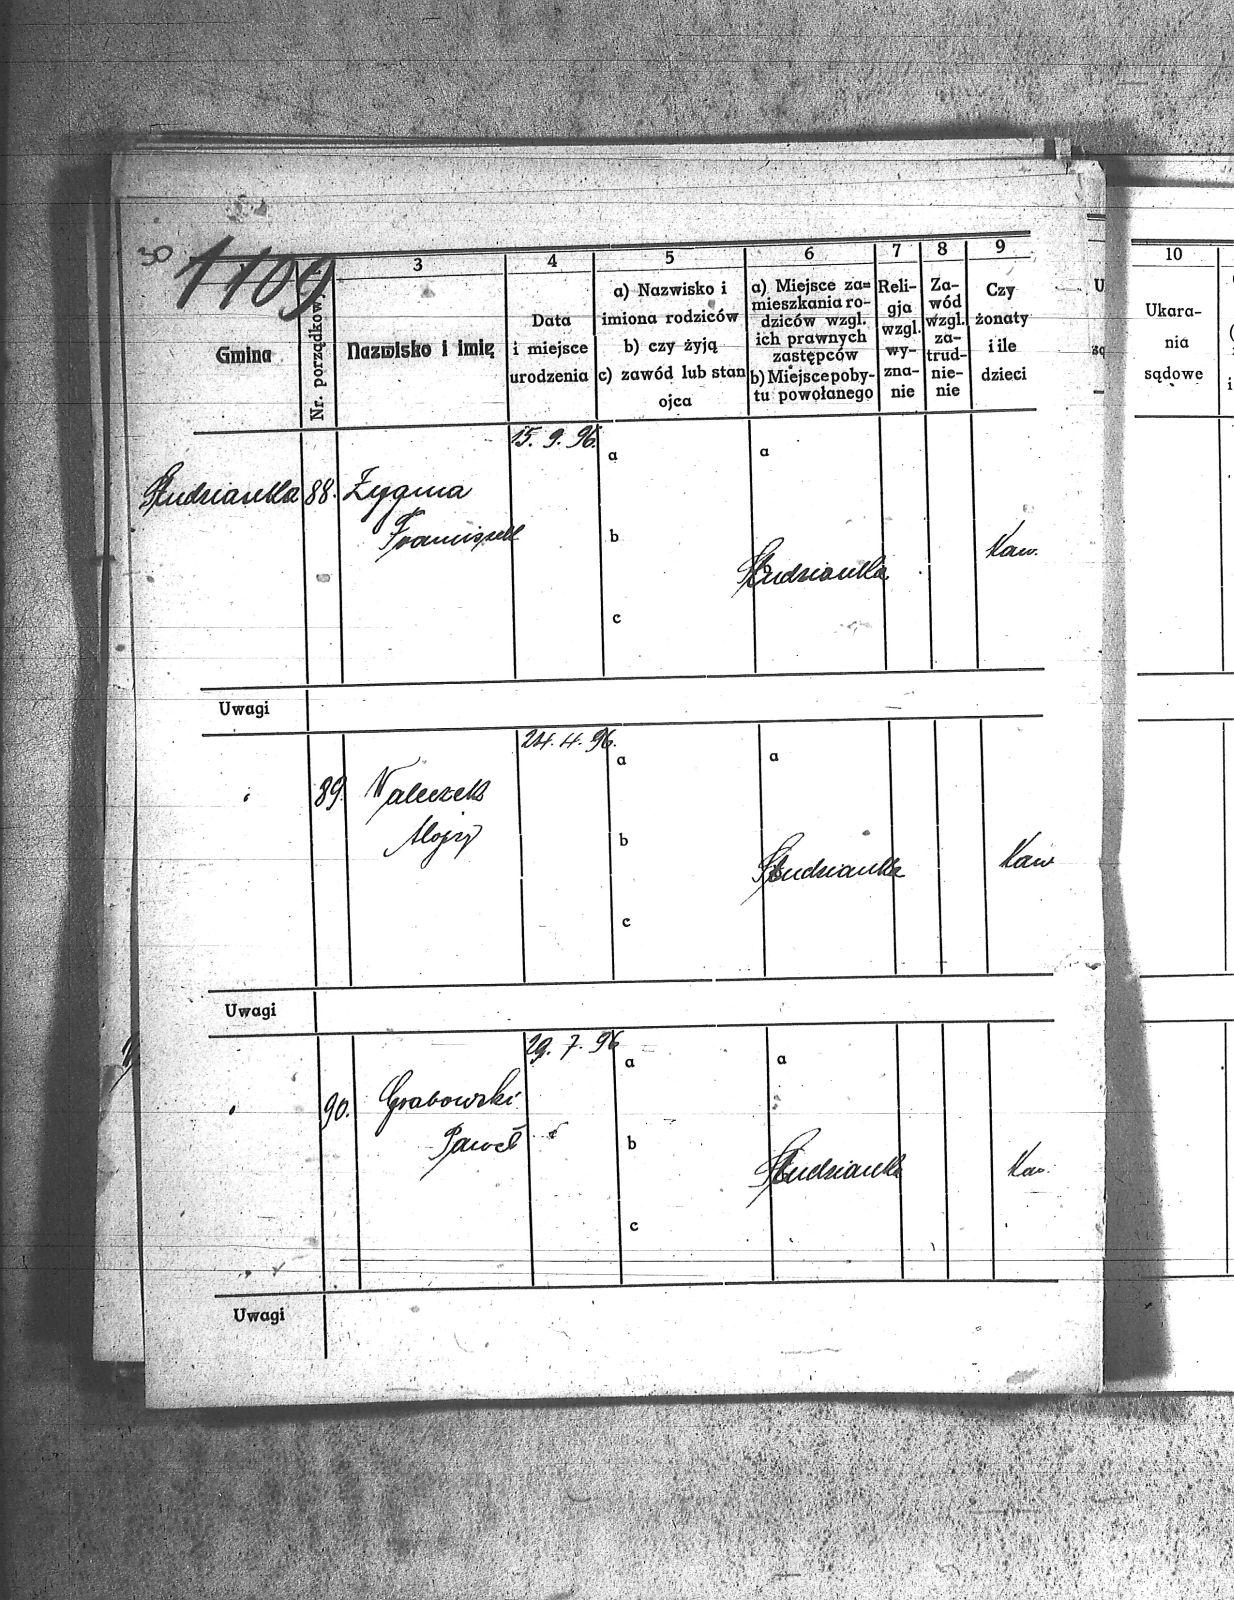 30
1109
3
4
5
6
7
8
9
10
Gmina
Nr. porządkow.
Nazwisko i imię
Data
i miejsce
urodzenia
a) Nazwisko i
imiona rodziców
b) czy żyją
c) zawód lub stan
ojca
a) Miejsce za=
mieszkania ro-
dziców wzgl.
ich prawnych
zastępców
b) Miejsce poby-
tu powołanego
Reli-
gja
wzgl.
wy-
zna-
nie
Za-
wód
wzgl.
za-
trud-
nie-
nie
Czy
żonaty
i ile
dzieci
Ukara-
nia
sądowe
Studzianka 88. Zygma
Franciszek
15. 9. 96.
a
b
c
a
Studzianka
Kaw.
Uwagi
89. Waleczek
Alojzy
24. 4. 96.
a
b
c
a
Studzianka
Kaw
Uwagi
90. Grabowski
Paweł
29. 7. 96
a
b
c
a
Studzianka
Kaw.
Uwagi